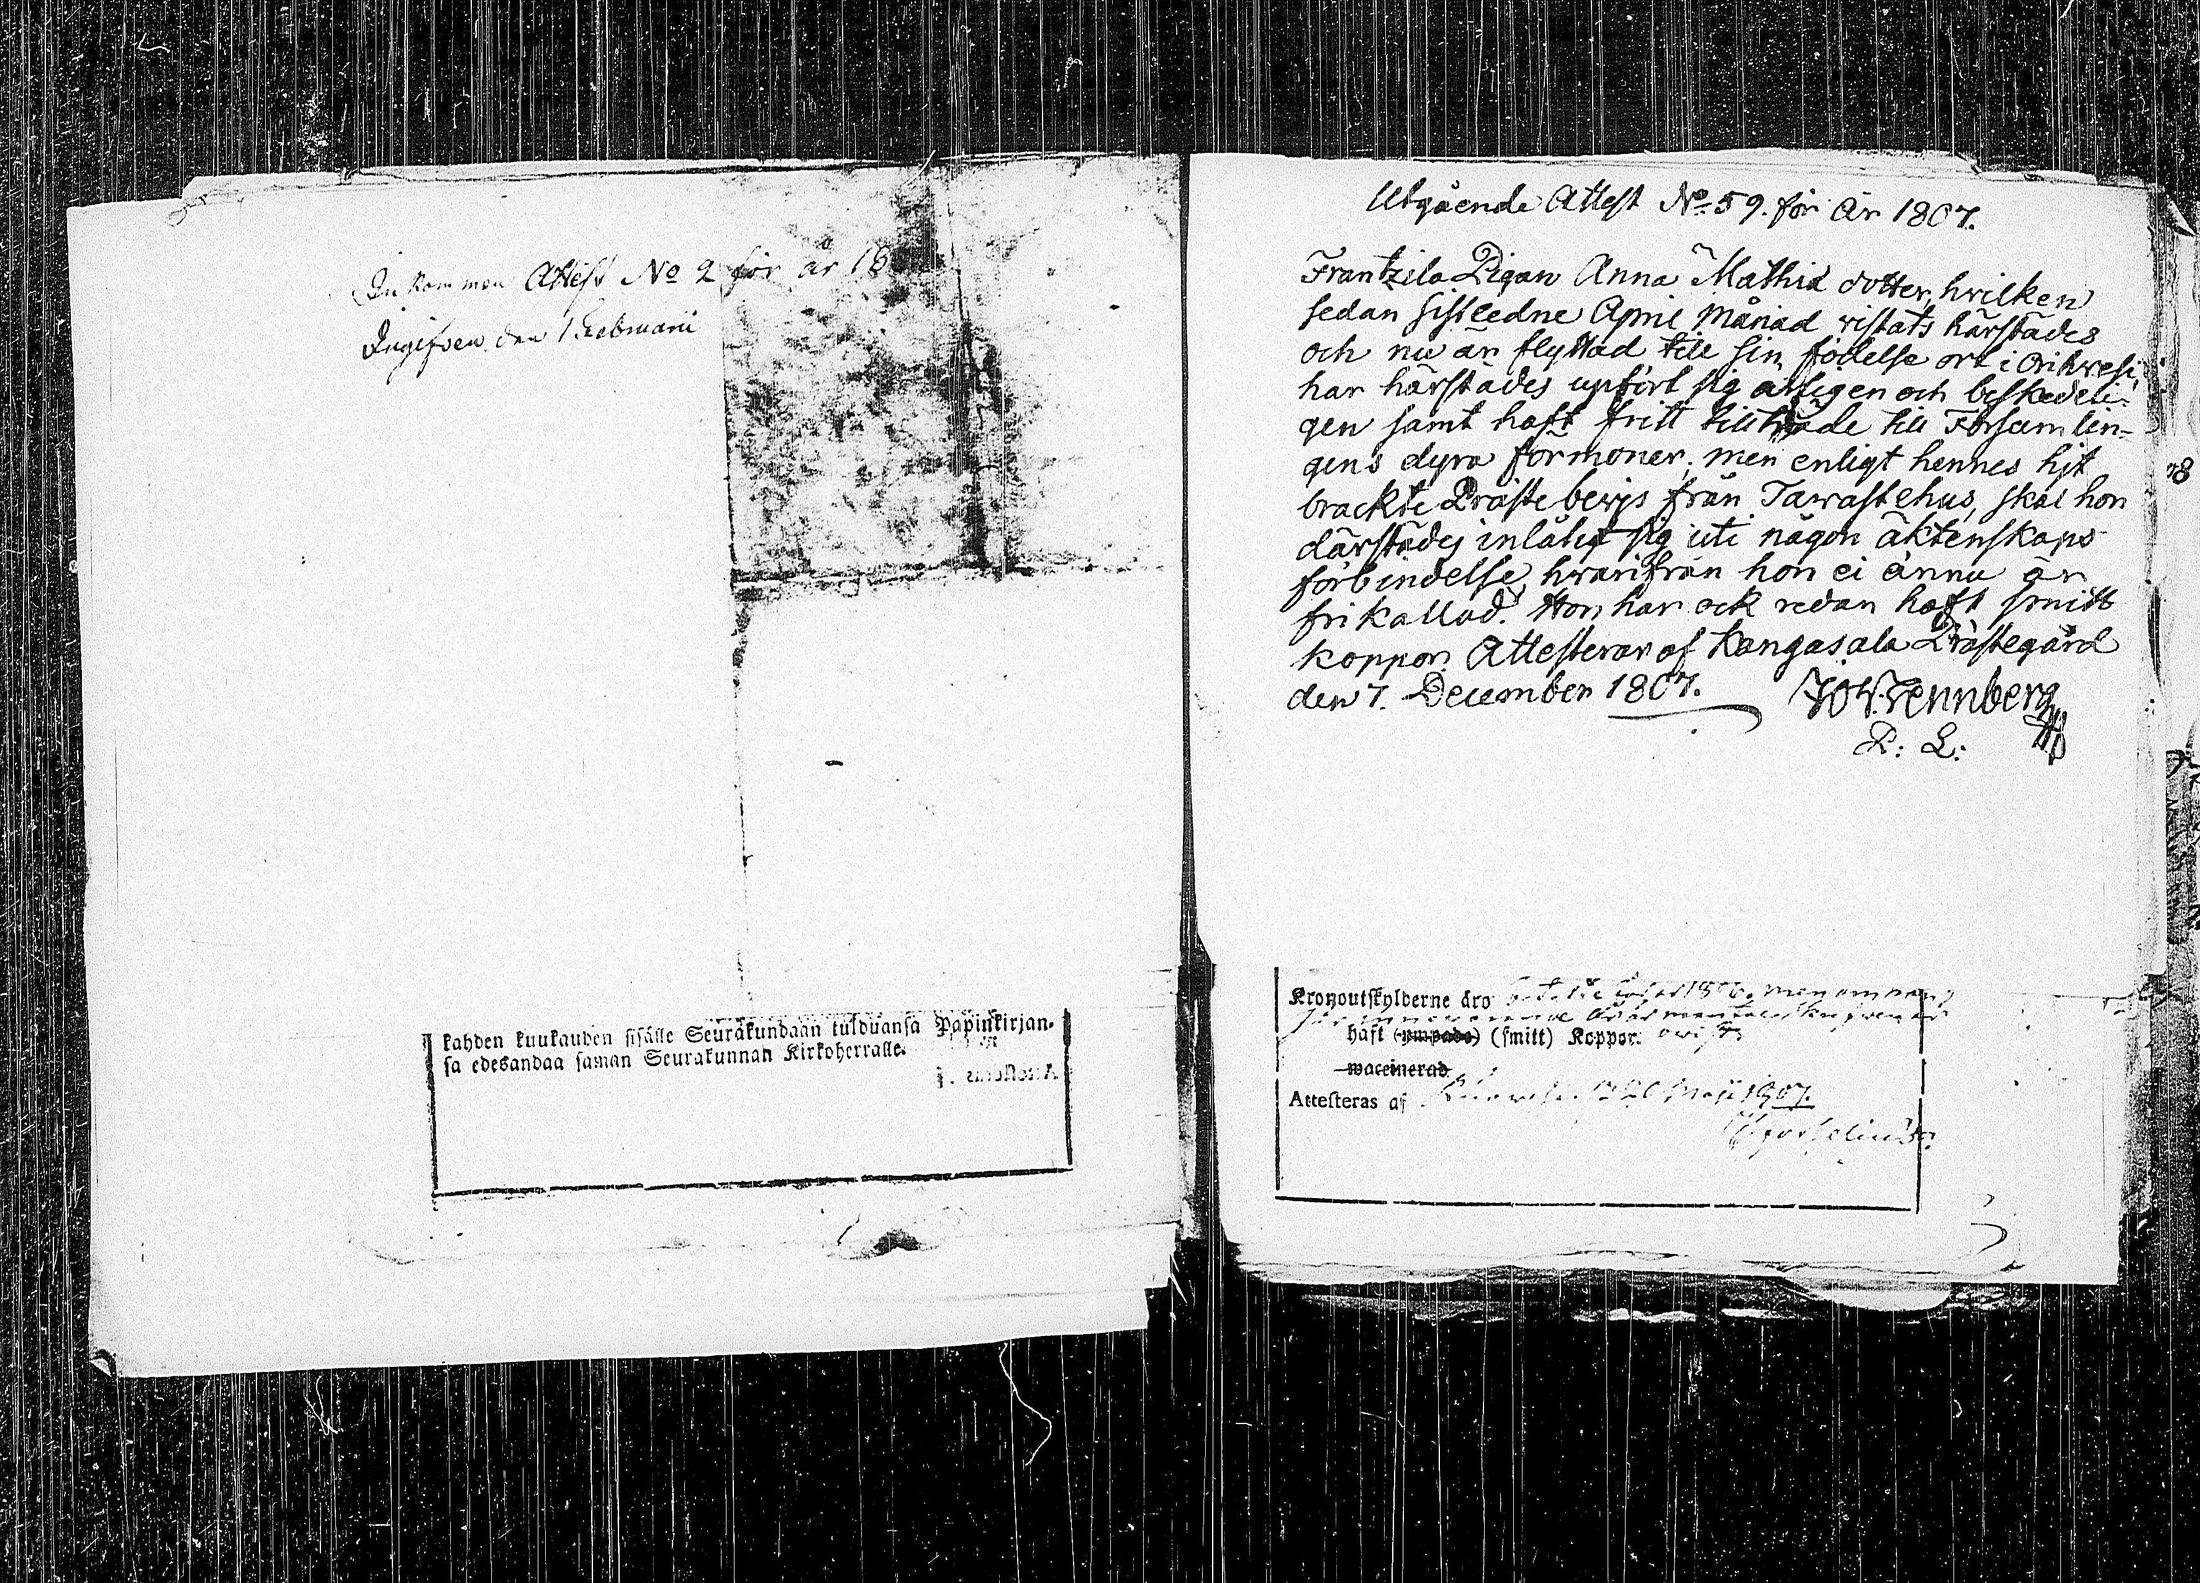 Inkommen Attest No 2 för år 18
Ingifven den 1 Februarii
kahden kuukauden sisälle Seurakundaan tulduansa Papinkirjan-
sa edesandaa saman Seurakunnan Kirkoherralle.
Utgående Attest No 59. för år 1807.
Frantzila Pigan Anna Mathis dotter, hvilken
sedan sistledne April Månad vistats härstädes
och nu är flyttad till sin födelse ort i Orihvesi,
har härstädes upfört sig ärligen och beskedeli-
gen samt haft fritt tillträde till Församlin-
gens dyra förmoner; men enligt hennes hit
brackte Präste bevis från Tawastehus, skal hon
därstädes inlåtit sig uti någon äktenskaps
förbindelse, hvarifrån hon ei ännu är
frikallad. Hon har ock redan haft smitt
koppor. Attesterar af Kangasala Prästegård
den 7. December 1807. Wennberg
P: L:
Kronoutskylderne äro 1806. men om hon
för innevarande år
haft (ympade) (smitt) Koppor.
waccinerad
Attesteras af d. 26 Maji 1807.